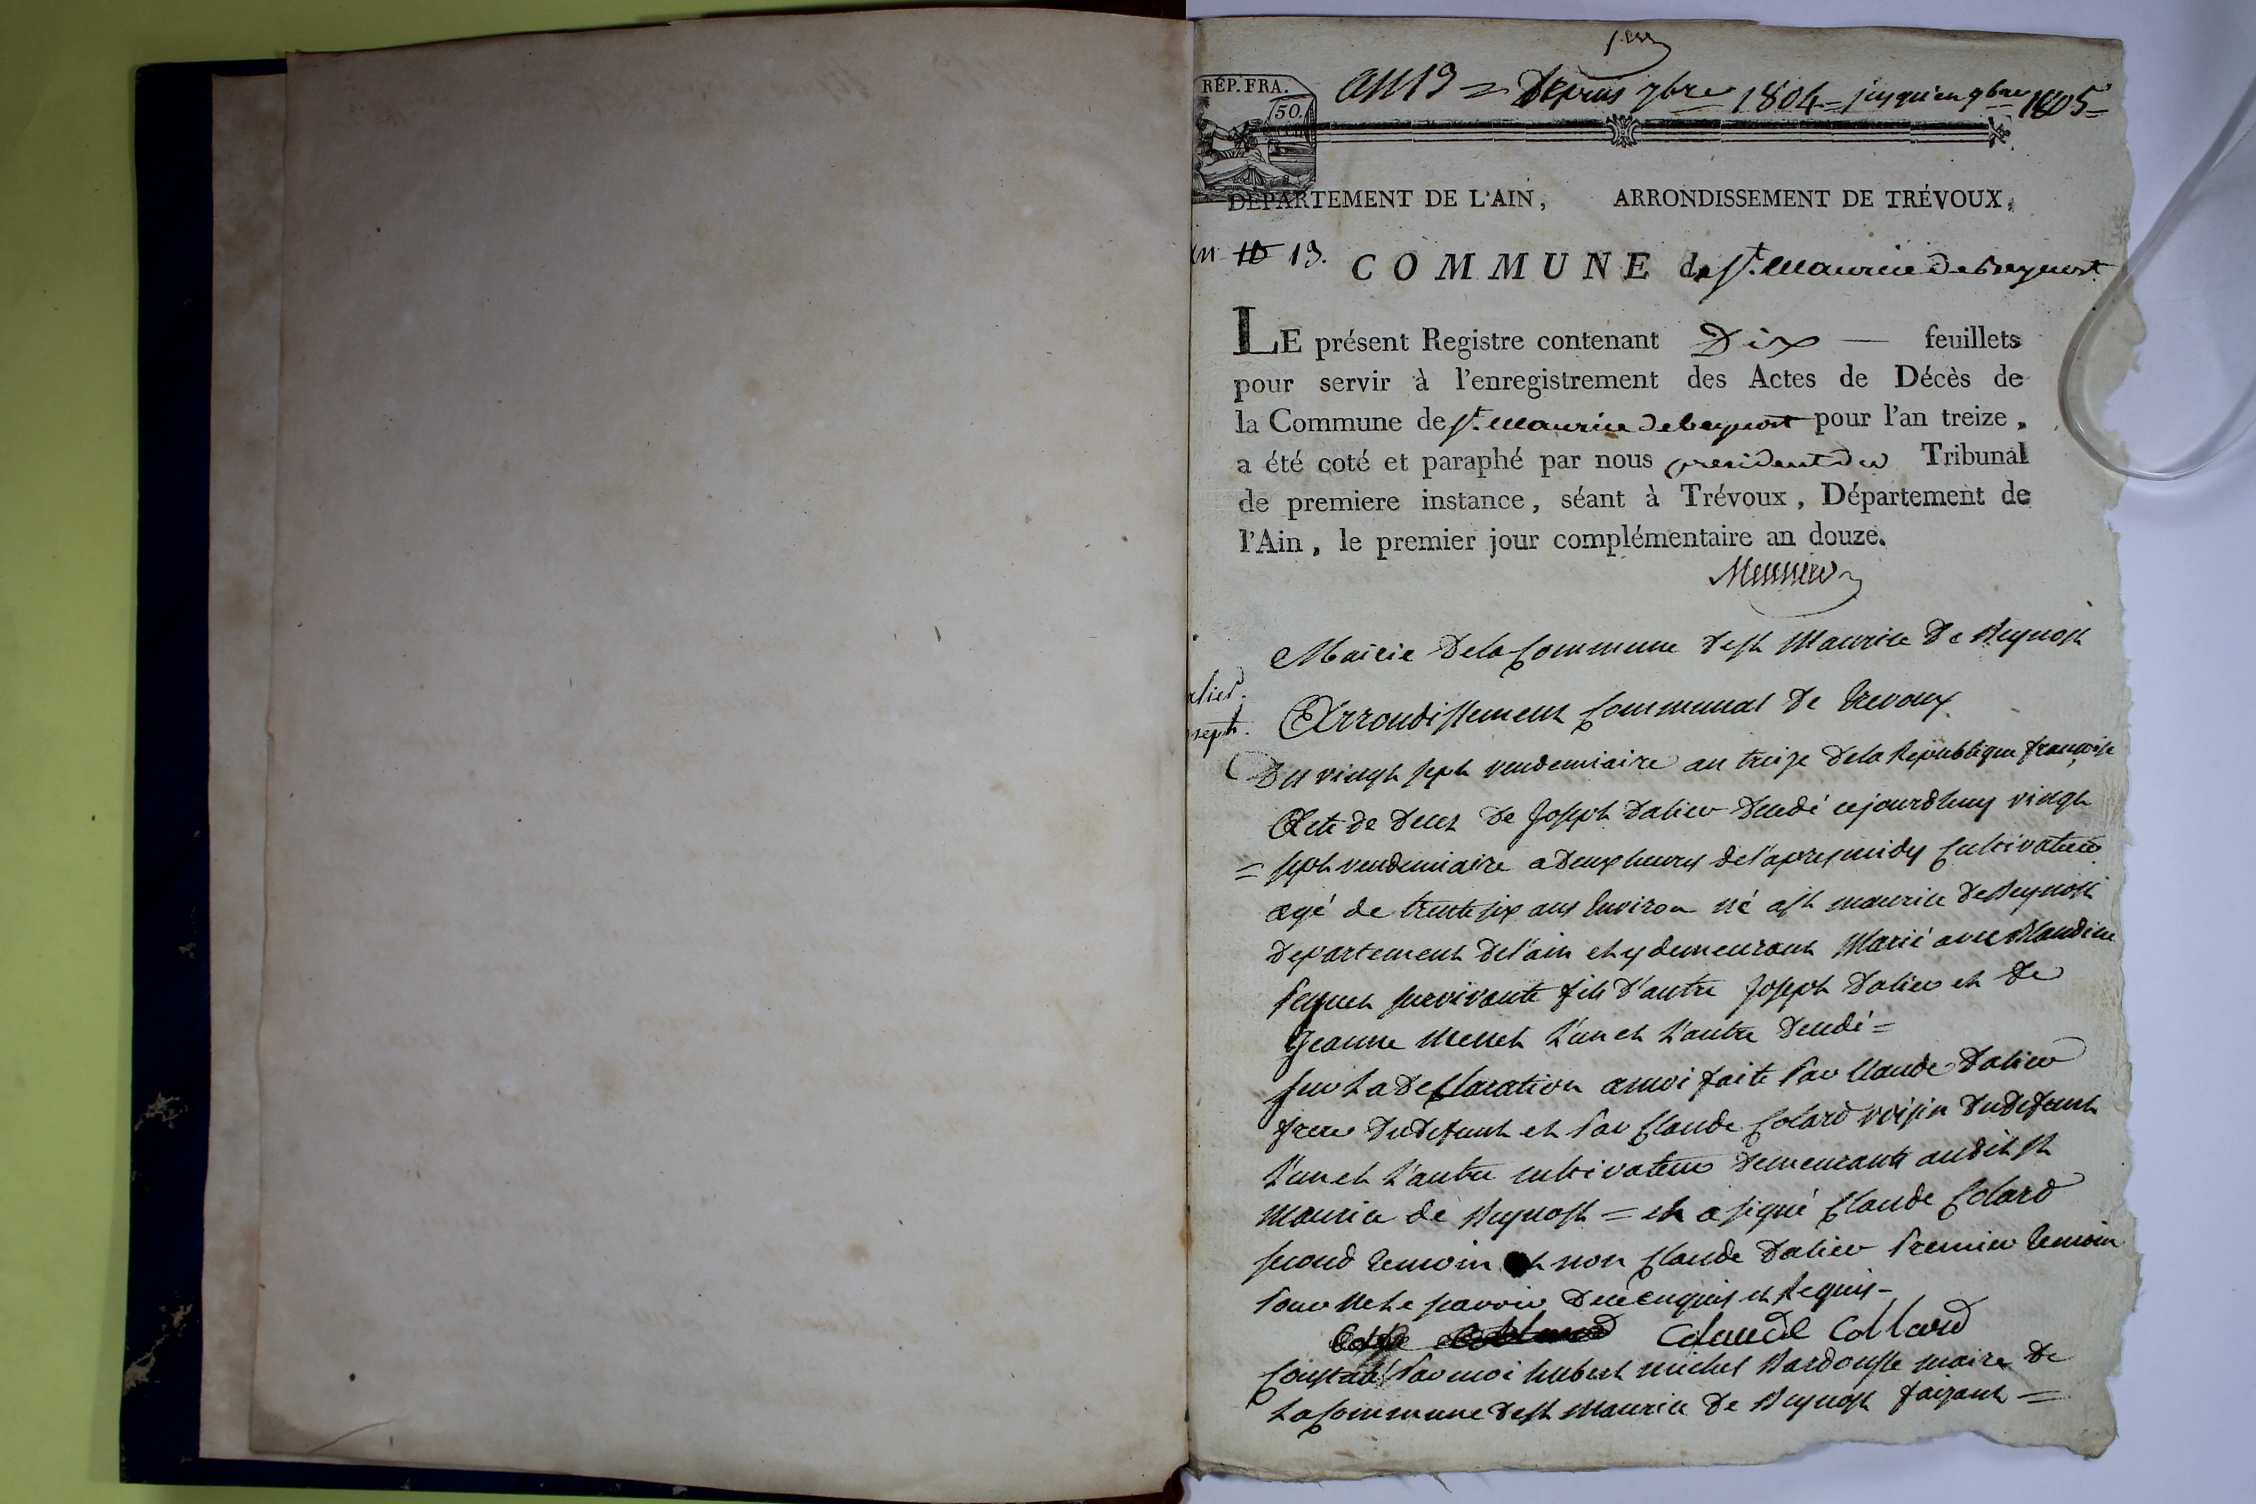 1er
REP. FRA.
50.
an 13 = Depuis 7bre 1804 = jusqu'en 9bre 1805 =
DÉPARTEMENT DE L'AIN, ARRONDISSEMENT DE TRÉVOUX.
an 10 13. COMMUNE de St. Maurice de beynost
LE présent Registre contenant Dix — feuillets
pour servir à l'enregistrement des Actes de Décès de
la Commune de St. Maurice de beynost pour l'an treize,
a été coté et paraphé par nous president du Tribunal
de premiere instance, séant à Trévoux, Département de
l'Ain, le premier jour complémentaire an douze.
Mairie De la Commune de St Maurice De Beynost
alier.
Arrondissement Communal De Trevoux
seph.
Du vingt sept vendemiaire an treize De la Republique françoise
Acte de Deces De Joseph Dalier Decedé cejourdhuy vingt
= sept vendemiaire a Deux heures de l'apres midy Cultivateur
agé de trente six ans Environ né a St maurice De Beynost
Departement de l'ain et y demeurant Marié avec Blandine
survivante fils d'autre Joseph Dalier et De
Jeanne L'un et L'autre Decedé =
sur La Declaration a moi faite Par Claude Dalier
frere Du Defunt et Par Claude Colard voisin Du Defunt
L'un et L'autre cultivateurs Demeurants audit St
Maurice de Beynost = et a signé Claude Colard
second temoin et non Claude Dalier Premier temoin
Pour Ne Le savoir De ce Enquis et Requis -
Claude Collard
Constaté Par moi hubert michel Bardousse maire De
La Commune de St Maurice De Beynost faisant =